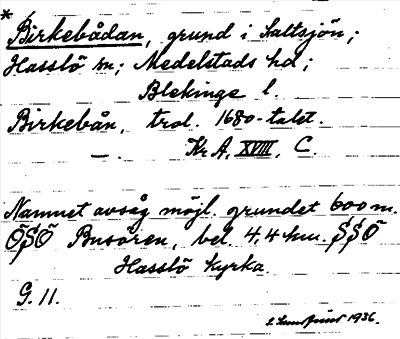 * Birkebådan, grund i Saltsjön;
Hasslö sn; Medelstads hd;
Blekinge l.
Birkebån, trol. 1680-talet.
— . Kr A, XVIII, C.
Namnet avsåg möjl. grundet 600 m.
ÖSÖ Busören, bel. 4,4 km. SSÖ
Hasslö kyrka.
G. 11.
1936.